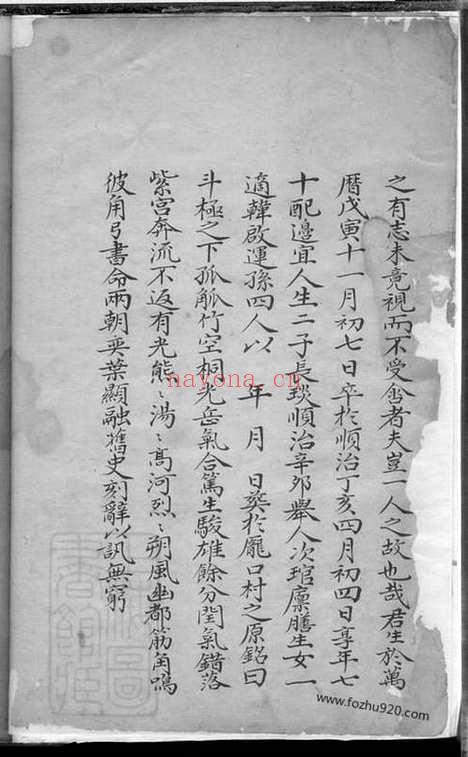 之有志未竟視而不受含者夫豈一人之故也哉君生於萬
曆戊寅十一月初七日卒於順治丁亥四月初四日享年七
十配邊宜人生二子長琰順治辛卯舉人次琯廩膳生女一
適韓啟運孫四人以 年 月 日葬於龐口村之原銘曰
斗極之下孤觚竹空桐光岳氣合篤生駿雄餘分閏氣錯落
紫宮奔流不返有光熊〻湯〻高河烈〻朔風幽都筋角鳴
彼角弓書命兩朝奕葉顯融舊史刻辭以訊無窮
nayona.cn
www.fozhu920.com